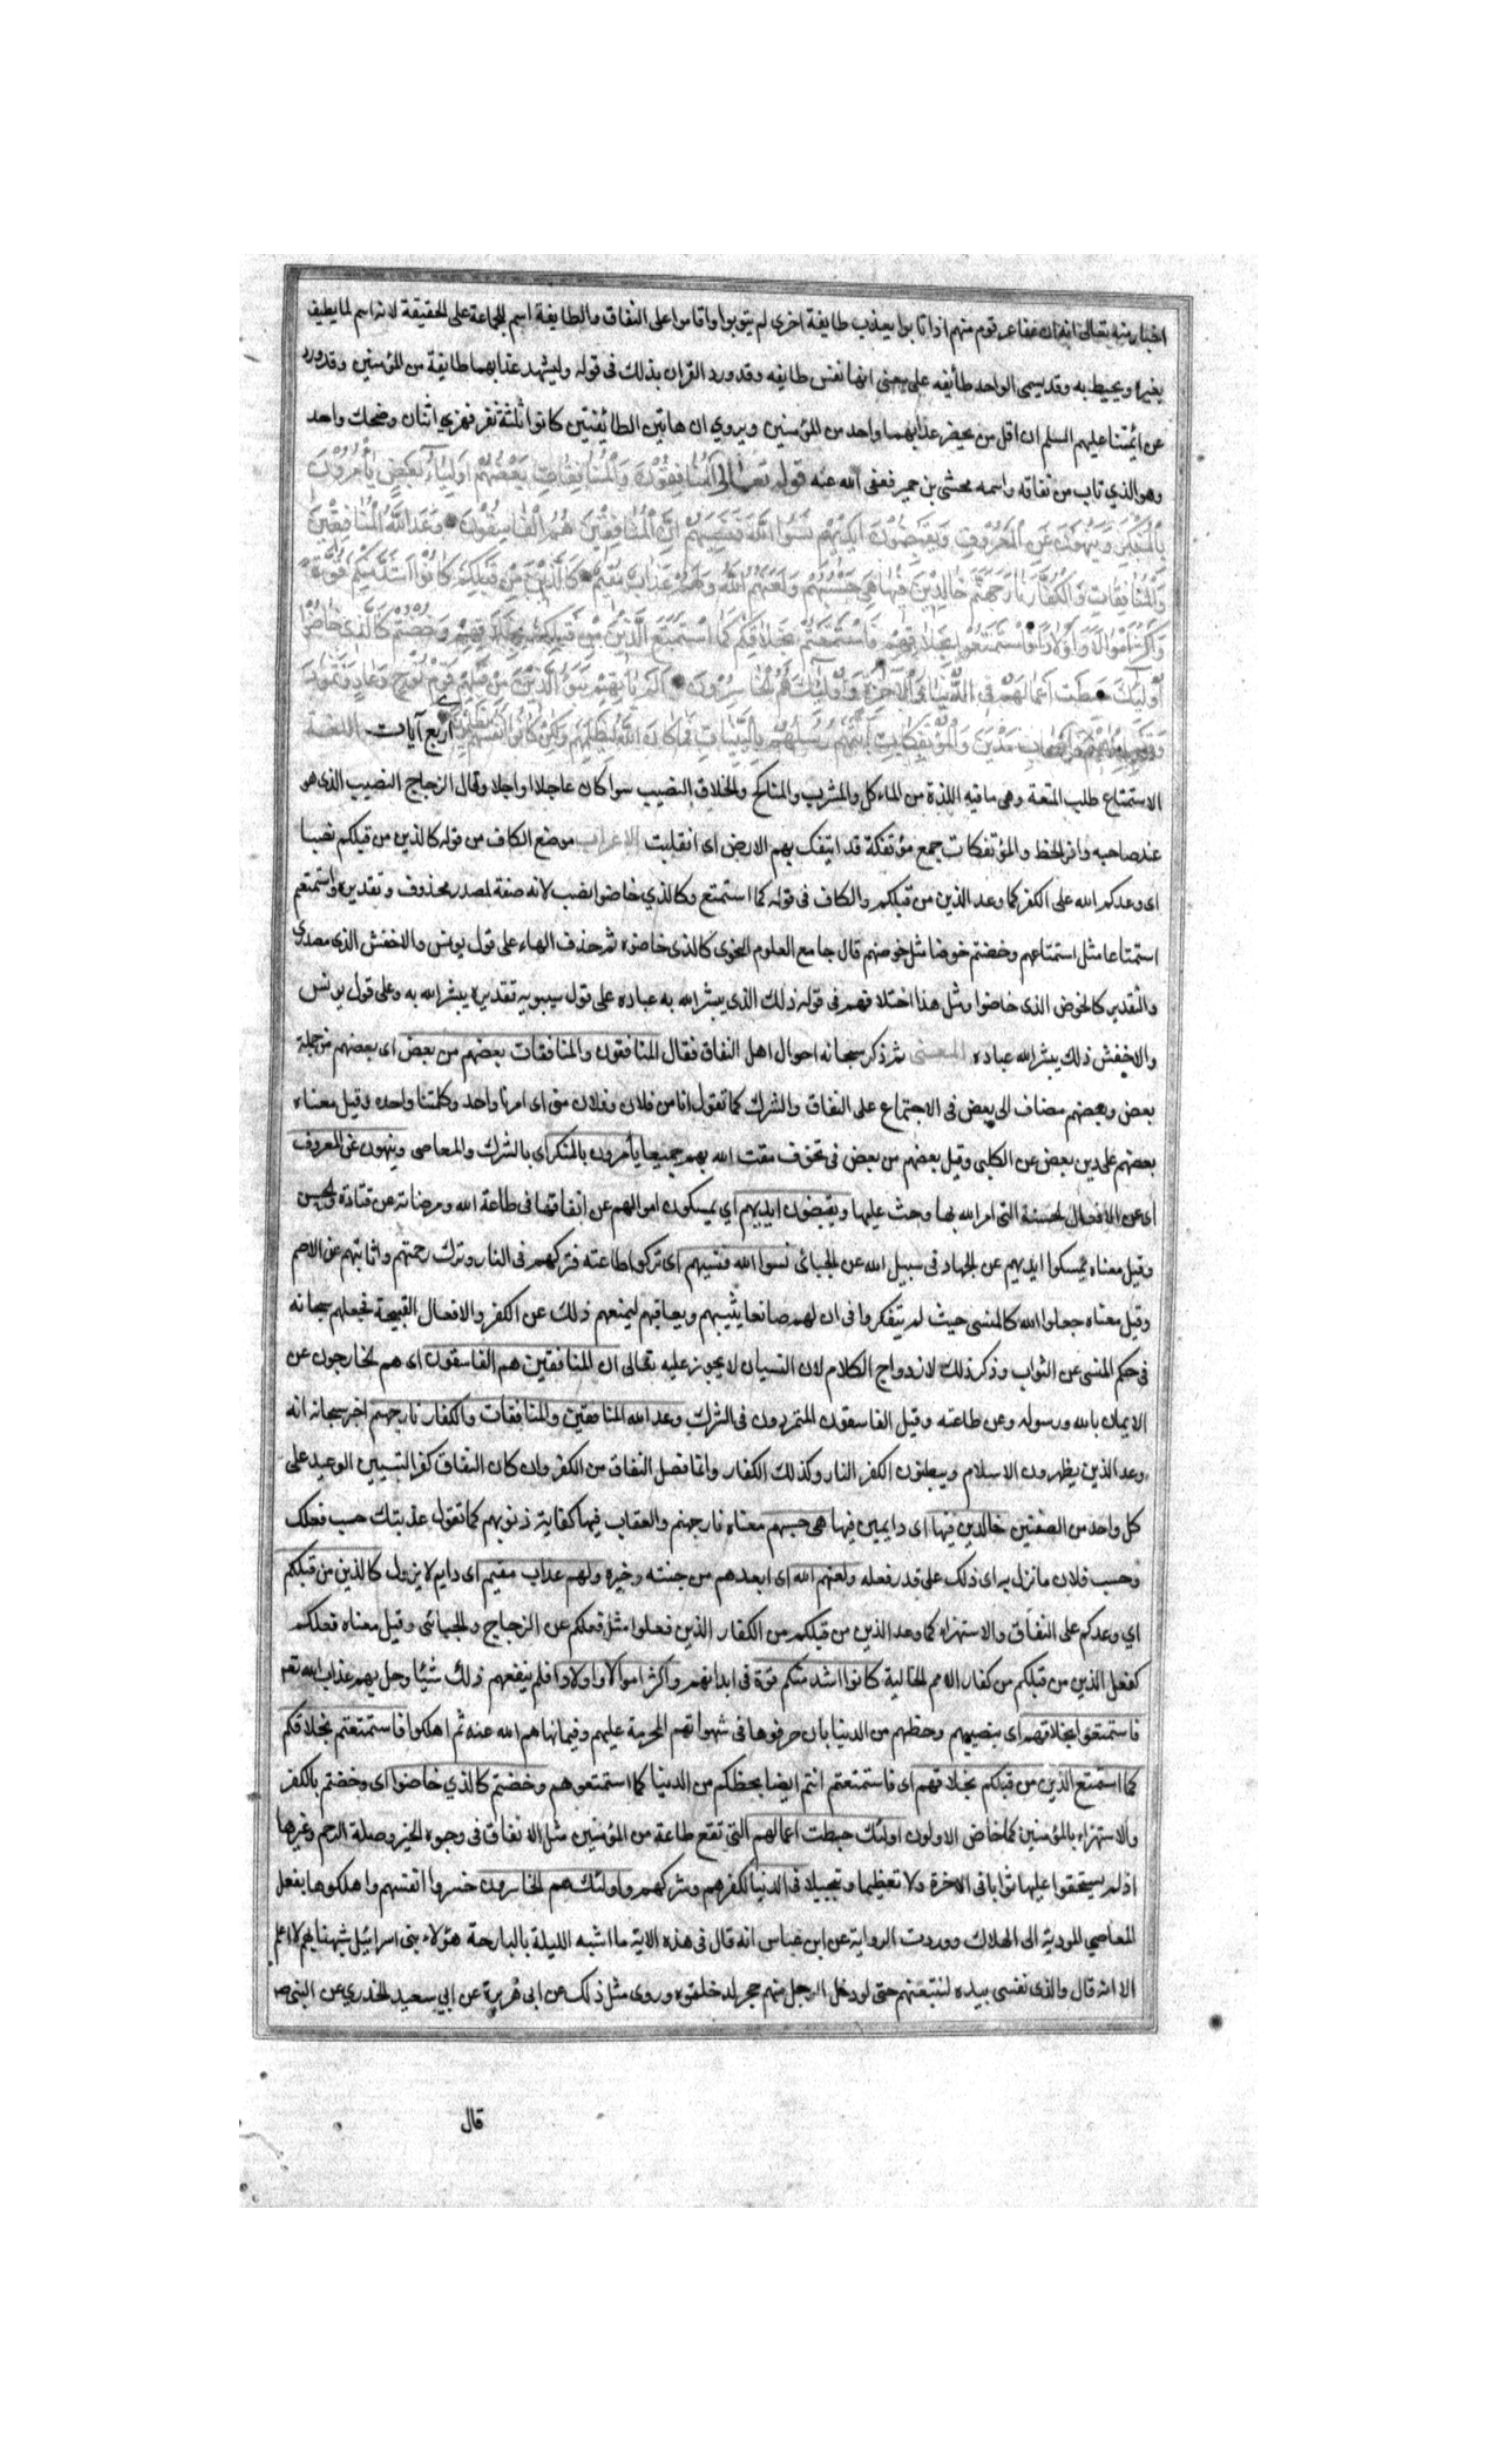 اخبار منه تعالى انه ان عفا عن قوم منهم اذا تابوا يعذب طايفة اخرى لم يتوبوا واقاموا على النفاق والطايفة اسم للجماعة على الحقيقة لانه اسم لما يطيف
بغيره ويحيط به وقد يسمى الواحد طايفه على معنى انها نفس طايفه وقد ورد القران بذلك فى قوله وليشهد عذابهما طايفة من المؤمنين وقد ورد
عن ائمتنا عليهم السلم ان اقل من يحضر عذابهما واحد من المؤمنين ويروي ان هاتين الطائفتين كانوا ثلثة نفر فهزي اثنان وضحك واحد
وهو الذي تاب من نفاقه واسمه مخشى بن حمير فعفى الله عنه قوله تعالى المنافقون والمنافقات بعضهم اولياء بعض يأمرون
بالمنكر وينهون عن المعروف ويقبضون ايديهم نسوا الله فنسيهم ان المنافقين هم الفاسقون وعد الله المنافقين
والمنافقات والكفار نار جهنم خالدين فيها هي حسبهم ولعنهم الله ولهم عذاب مقيم كالذين من قبلكم كانوا اشد منكم قوة
واكثر اموالا واولادا فاستمتعوا بخلاقهم فاستمتعتم بخلاقكم كما استمتع الذين من قبلكم بخلاقهم وخضتم كالذى خاضوا
اولئك حبطت اعمالهم فى الدنيا والاخرة واولئك هم الخاسرون الم يأتهم نبؤ الذين من قبلهم قوم نوح وعاد وثمود
وقوم ابرهيم واصحاب مدين والمؤتفكات اتتهم رسلهم بالبينات فما كان الله ليظلمهم ولكن كانوا انفسهم يظلمون اربع آيات اللغة
الاستمتاع طلب المتعة وهى ما فيه اللذة من الماءكل والمشرب والمناكح والخلاق النصيب سوا كان عاجلا او اجلا وقال الزجاج النصيب الذى هو
عند صاحبه وافر الحظ والمؤتفكات جمع مؤتفكة قد ايتفك بهم الارض اى انقلبت الاعراب موضع الكاف من قوله كالذين من قبلكم نصبا
اى وعدكم الله على الكفر كما وعد الذين من قبلكم والكاف فى قوله كما استمتع وكالذي خاضوا نصب لانه صفة لمصدر محذوف وتقديره واستمتعتم
استمتاعا مثل استمتاعهم وخضتم خوضا مثل خوضهم قال جامع العلوم النحوى كالذى خاضوه ثم حذف الهاء على قول يونس والاخفش الذى مصدري
والتقدير كالخوض الذى خاضوا ومثل هذا اختلافهم فى قوله ذلك الذى يبشر الله به عباده على قول سيبويه تقديره يبشر الله به وعلى قول يونس
والاخفش ذلك يبشر الله عباده المعنى ثم ذكر سبحانه احوال اهل النفاق فقال المنافقون والمنافقات بعضهم من بعض اى بعضهم من جملة
بعض وبعضهم مضاف الى بعض فى الاجتماع على النفاق والشرك كما تقول انا من فلان وفلان منى اى امرنا واحد وكلمتنا واحده وقيل معناه
بعضهم على دين بعض عن الكلبى وقيل بعضهم من بعض فى تخوف مقت الله بهم جميعا يأمرون بالمنكر اى بالشرك والمعاصى وينهون عن المعروف
اى عن الافعال الحسنة التى امر الله بها وحث عليها ويقبضون ايديهم اي يمسكون اموالهم عن انفاقها فى طاعة الله ومرضاته عن قتادة والحسن
وقيل معناه يمسكوا ايديهم عن الجهاد فى سبيل الله عن الجبائى نسوا الله فنسيهم اى تركوا طاعته فتركهم فى النار وترك رحمتهم واثابتهم عن الاصم
وقيل معناه جعلوا الله كالمنسى حيث لم يتفكروا فى ان لهم صانعا يثيبهم ويعاقبهم ليمنعهم ذلك عن الكفر والافعال القبيحة فجعلهم سبحانه
فى حكم المنسى عن الثواب وذكر ذلك لازدواج الكلام لان النسيان لا يجوز عليه تعالى ان المنافقين هم الفاسقون اى هم الخارجون عن
الايمان بالله ورسوله وعن طاعته وقيل الفاسقون المتمردون فى الشرك وعد الله المنافقين والمنافقات والكفار نار جهنم اخبر سبحانه انه
وعد الذين يظهرون الاسلام ويبطنون الكفر النار وكذلك الكفار وانما فصل النفاق من الكفر وان كان النفاق كفرا لتبيين الوعيد على
كل واحد من الصنفين خالدين فيها اى دايمين فيها هى حسبهم معناه نار جهنم والعقاب فيها كفاية ذنوبهم كما تقول عذبتك حسب فعلك
وحسب فلان ما نزل به اى ذلك على قدر فعله ولعنهم الله اى ابعدهم من جنته وخيره ولهم عذاب مقيم اى دايم لا يزول كالذين من قبلكم
اي وعدكم على النفاق والاستهزاء كما وعد الذين من قبلكم من الكفار الذين فعلوا مثل فعلكم عن الزجاج والجبائى وقيل معناه فعلكم
كفعل الذين من قبلكم من كفار الامم الخالية كانوا اشد منكم قوة فى ابدانهم واكثر اموالا واولادا فلم ينفعهم ذلك شيئا وحل بهم عذاب الله تعم
فاستمتعوا بخلاقهم اى بنصيبهم وحظهم من الدنيا بان صرفوها فى شهواتهم المحرمة عليهم وفيما نهاهم الله عنه ثم اهلكوا فاستمتعتم بخلاقكم
كما استمتع الذين من قبلكم بخلاقهم اى فاستمتعتم انتم ايضا بحظكم من الدنيا كما استمتعوهم وخضتم كالذي خاضوا اى وخضتم بالكفر
والاستهزاء بالمؤمنين كما خاض الاولون اولئك حبطت اعمالهم التى تقع طاعة من المؤمنين مثل الانفاق فى وجوه الخير وصلة الرحم وغيرها
اذ لم يستحقوا عليها ثوابا فى الاخرة ولا تعظيما وتبجيلا فى الدنيا لكفرهم وشركهم واولئك هم الخاسرون خسروا انفسهم واهلكوها بفعل
المعاصي المودية الى الهلاك ووردت الرواية عن ابن عباس انه قال فى هذه الاية ما اشبه الليلة بالبارحة هؤلاء بنى اسرائيل شبهنا بهم لا اعلم
الا انه قال والذى نفسى بيده لتتبعنهم حتى لو دخل الرجل منهم جحر لدخلتموه وروى مثل ذلك عن ابى هريرة عن ابي سعيد الخدري عن النبى ص
قال